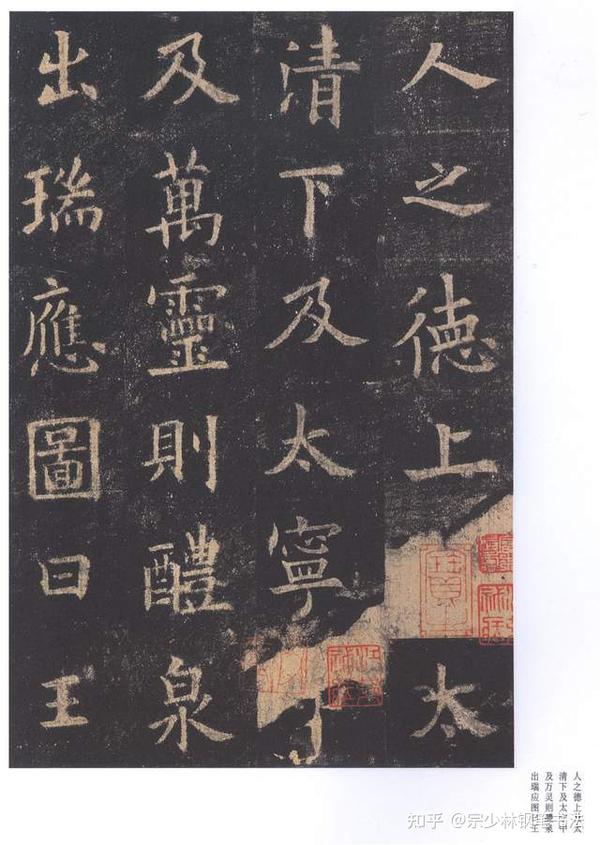 人之德上太
清下及太寧
及萬靈則醴泉
出瑞應圖曰王
人之德上及太
清下及太宁中
及万灵则醴泉
出瑞应图曰王
知乎 @宗少林钢笔书法